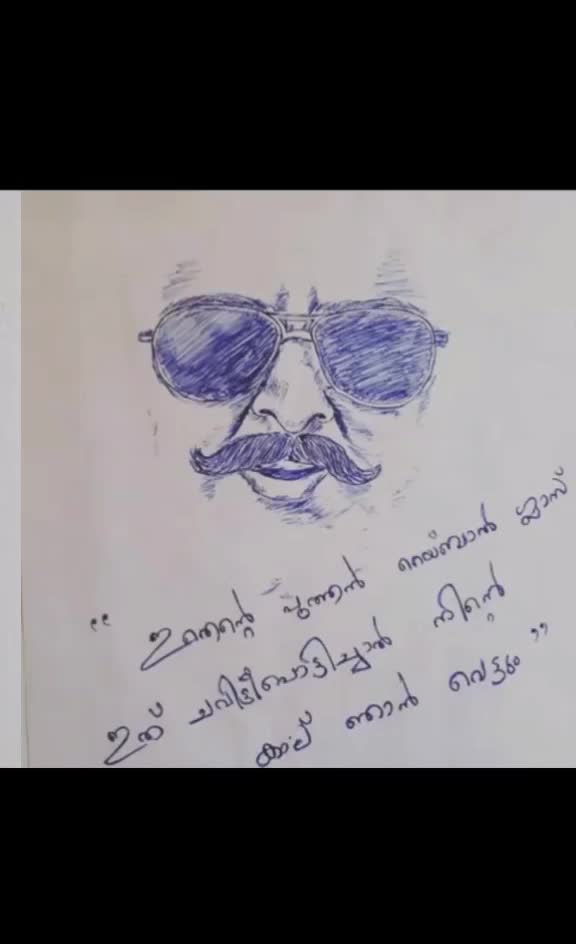 “ ഇതെന്റെ പുത്തൻ റെയ്ബാൻ ഗ്ലാസ്
ഇത് ചവിട്ടിപൊട്ടിച്ചാൽ നിന്റെ
കാല് ഞാൻ വെട്ടും ”